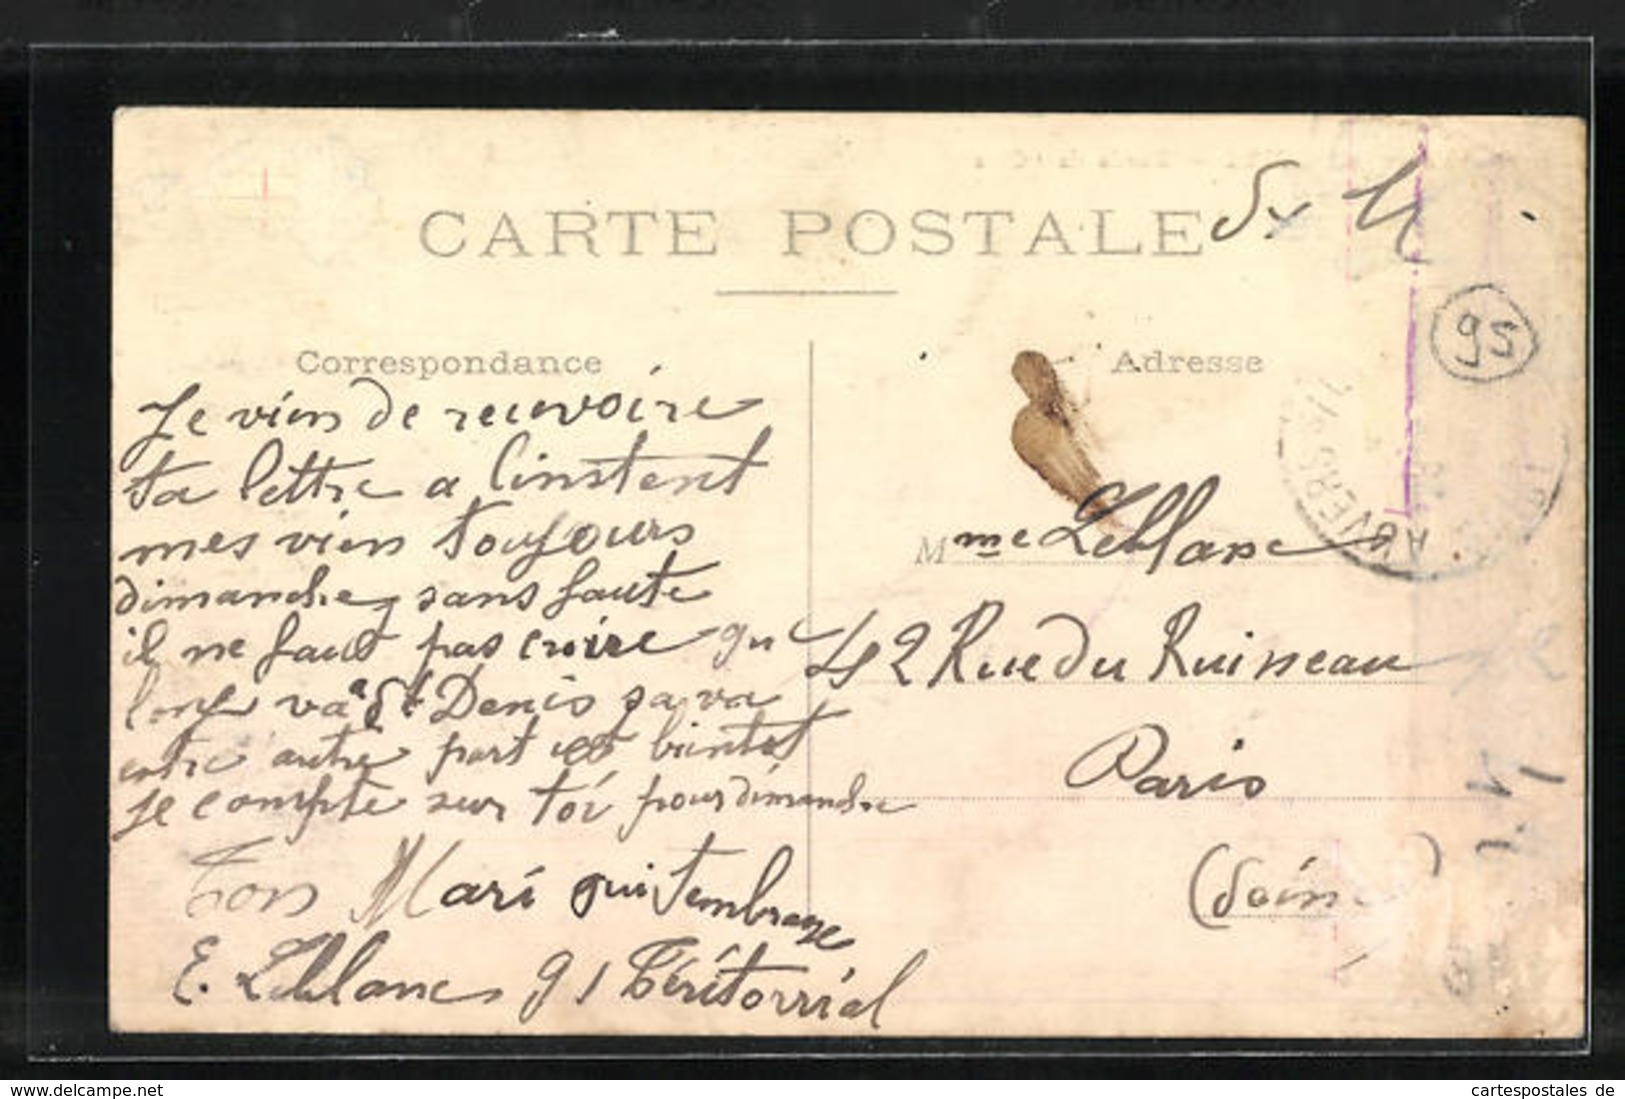 CARTE POSTALE
S. M
95
Correspondance
Adresse
AUVERS
Je vien de recevoire
ta lettre a l'instent
mes vien toujours
dimanche sans faute
il ne faut pas croire qu
l'on va a St Denis sa va
entre autre part est bientot
je compte sur toi pour dimanche
Ton Mari qui t'embrasse
E. Leblanc 91 Téritorrial
Mme Leblanc
42 Rue du Ruisseau
Paris
(Seine)
www.delcampe.net
cartespostales de